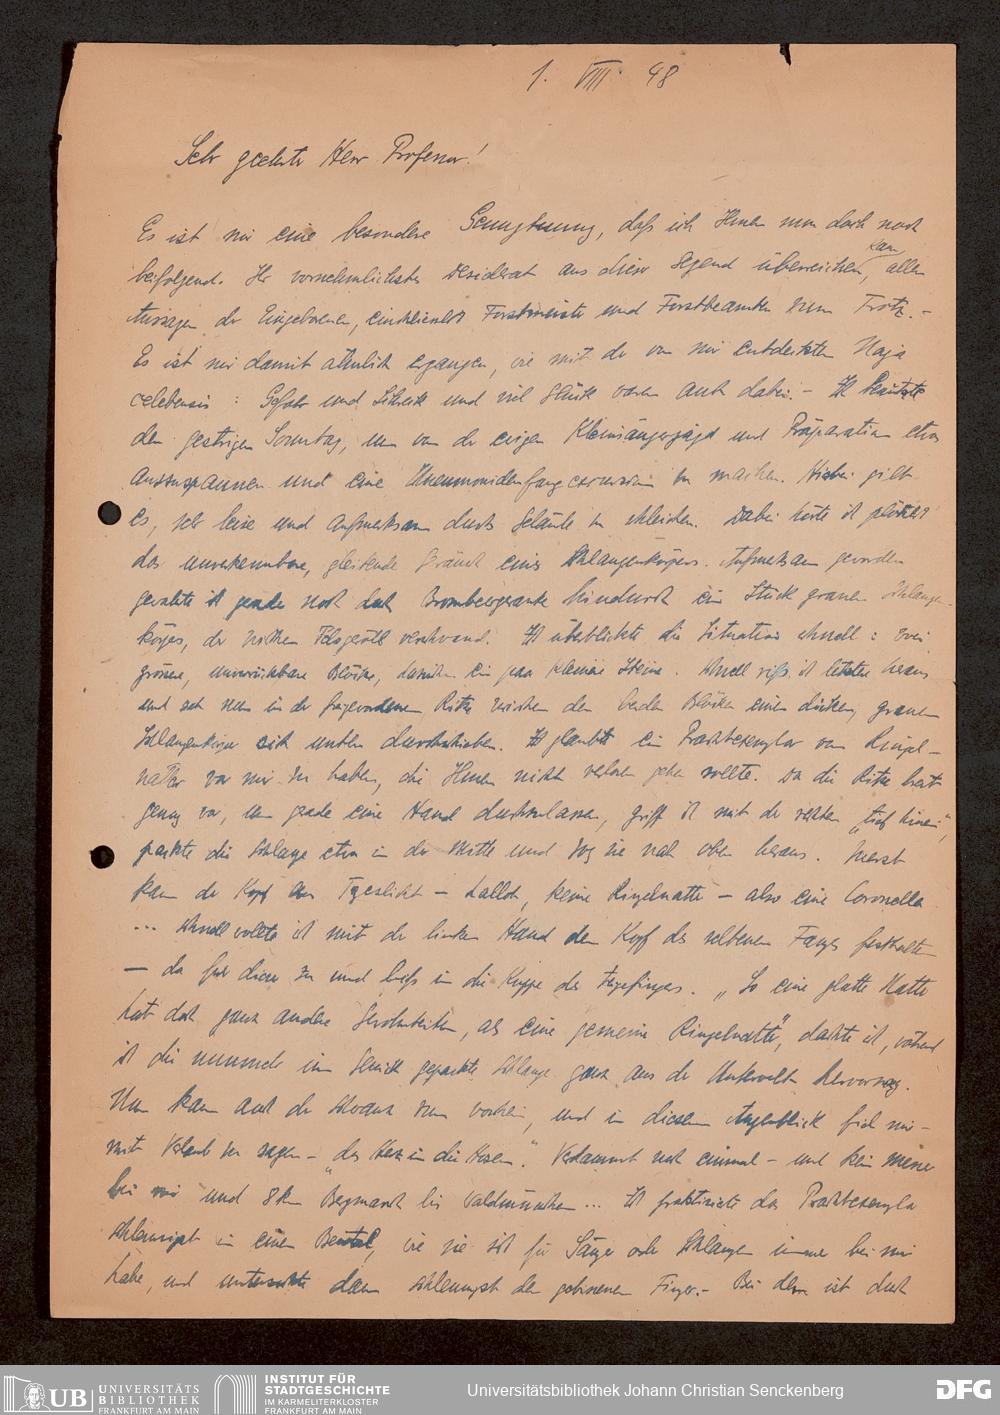 1. VIII. 48
Sehr geehrter Herr Professor!
Es ist mir eine besondere Genugtuung, daß ich Ihnen nun doch noch
kann,
beifolgend Ihr vornehmlichstes Desiderat aus dieser Gegend überreichen, allen
Aussagen der Eingeborenen, einschliesslich Forstmeister und Forstbeamten zum Trotz. –
Es ist mir damit ähnlich ergangen, wie mit der von mir entdeckten Naja
celebensis: Gefahr und Schreck und viel Glück waren auch dabei. – Ich benützte
den gestrigen Sonntag, um von der ewigen Kleinsäugerjagd und Präparation etwas
auszuspannen und eine Ichneumonidenfangexcursion zu machen. Hiebei gilt
es, sehr leise und aufmerksam durchs Gelände zu schleichen. Dabei hörte ich plötzlich
das unverkennbare, gleitende Geräusch eines Schlangenkörpers. Aufmerksam geworden
gewahrte ich gerade noch durch Brombeergeranke hindurch ein Stück grauen Schlangen-
körpers, der zwischen Felsgeröll verschwand. Ich überblickte die Situation schnell: zwei
grössere, unverrückbare Blöcke, dazwischen ein paar kleinere Steine. Schnell riß ich letztere heraus
und sah nun in der freigewordenen Ritze zwischen den beiden Blöcken einen dicken, grauen
Schlangenkörper sich unten durchschieben. Ich glaubte ein Prachtexemplar von Ringel-
natter vor mir zu haben, die Ihnen nicht verloren gehen sollte. Da die Ritze breit
genug war, um gerade eine Hand durchzulassen, griff ich mit der rechten „tief hinein“,
packte die Schlange etwa in der Mitte und zog sie nach oben heraus. Zuerst
kam der Kopf ans Tageslicht – halloh, keine Ringelnatter – also eine Coronella
... schnell wollte ich mit der linken Hand den Kopf des seltenen Fanges festhalten
– da fuhr dieser zu und biß in die Kuppe des Zeigefingers. „So eine glatte Natter
hat doch ganz andere Gewohnheiten, als eine gemeine Ringelnatter“, dachte ich, während
ich die nunmehr im Genick gepackte Schlange ganz aus der Unterwelt hervorzog.
Nun kam auch der Schwanz zum vorschein, und in diesem Augenblick fiel mir –
mit Verlaub zu sagen – „das Herz in die Hosen“. Verdammt noch einmal – und kein Mensch
bei mir und 8 km Bergmarsch bis Waldmünchen ... Ich praktizierte das Prachtexemplar
schleunigst in einen Beutel, wie sie ich für Säuger oder Schlangen immer bei mir
habe, und untersuchte dann schleunigst den gebissenen Finger. – Bei dem ist durch
UB UNIVERSITÄTS
BIBLIOTHEK
FRANKFURT AM MAIN
INSTITUT FÜR
STADTGESCHICHTE
IM KARMELITERKLOSTER
FRANKFURT AM MAIN
Universitätsbibliothek Johann Christian Senckenberg
DFG